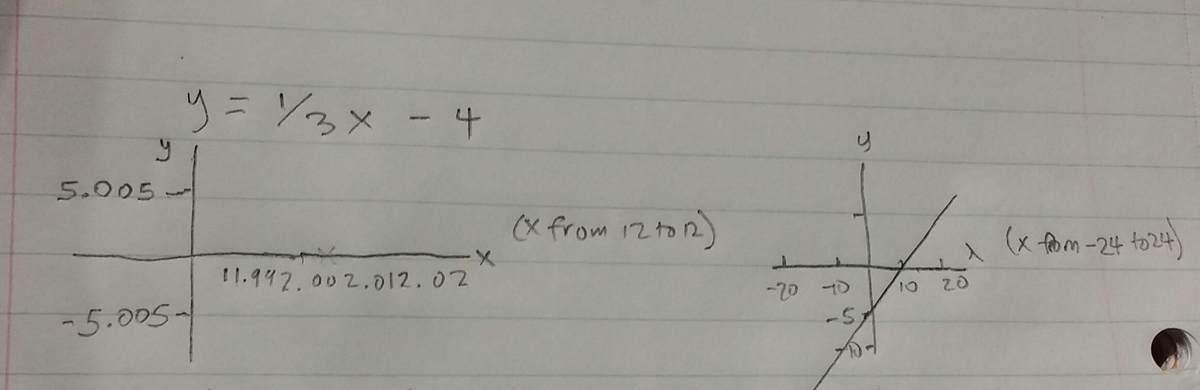 y = 1/3 x - 4
y
5.005
x
(x from 12 to 12)
11.992.002.012.02
-5.005
y
x (x from -24 to 24)
-20 -10 10 20
-5
-10